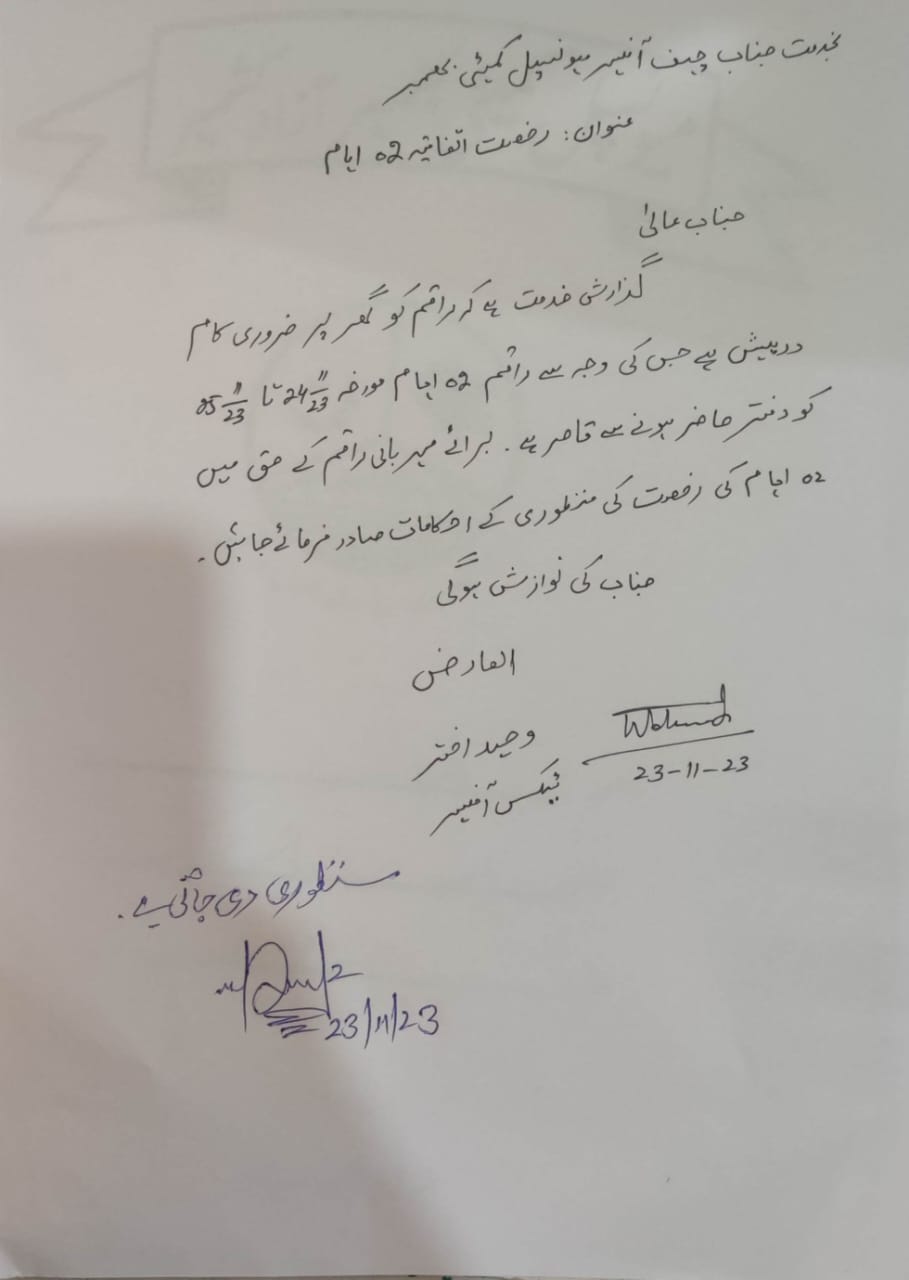 بخدمت جناب چیف آفیسر میونسپل کمیٹی بھمبر
عنوان: رخصت اتفاقیہ 02 ایام
جناب عالیٰ
گذارش خدمت ہے کہ راقم کو گھر پر ضروری کام
درپیش ہے جس کی وجہ سے راقم 02 ایام مورخہ 24/11/23 تا 25/11/23
کو دفتر حاضر ہونے سے قاصر ہے۔ برائے مہربانی راقم کے حق میں
02 ایام کی رخصت کی منظوری کے احکامات صادر فرمائے جائیں۔
جناب کی نوازش ہوگی
العارض
وحید اختر
23-11-23
ٹیکس آفیسر
منظوری دی جاتی ہے۔
23/11/23